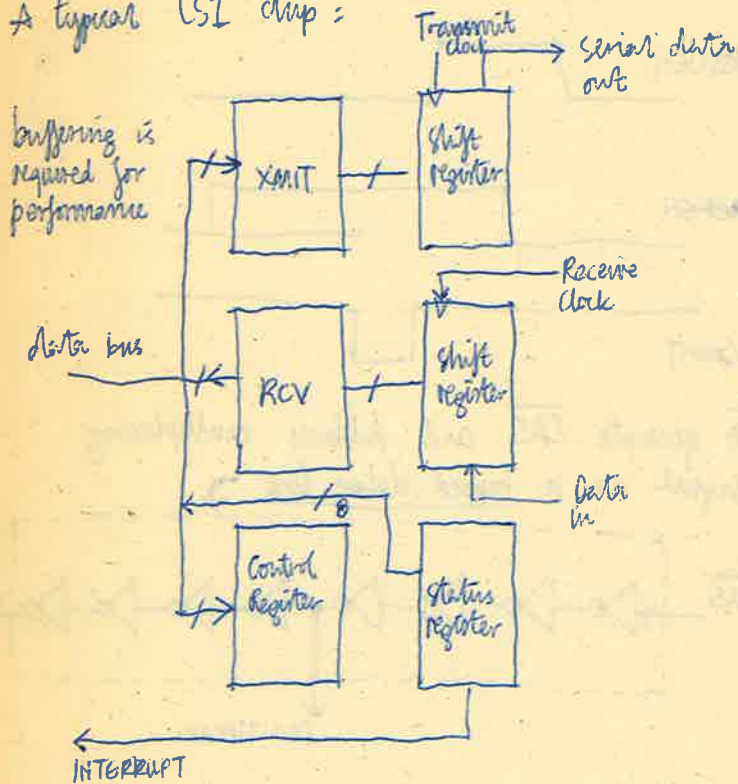 A typical LSI chip:
Transmit
clock
serial data
out
buffering is
required for
performance
XMIT
Shift
register
Receive
Clock
data bus
RCV
Shift
register
Data
in
8
Control
Register
Status
register
INTERRUPT